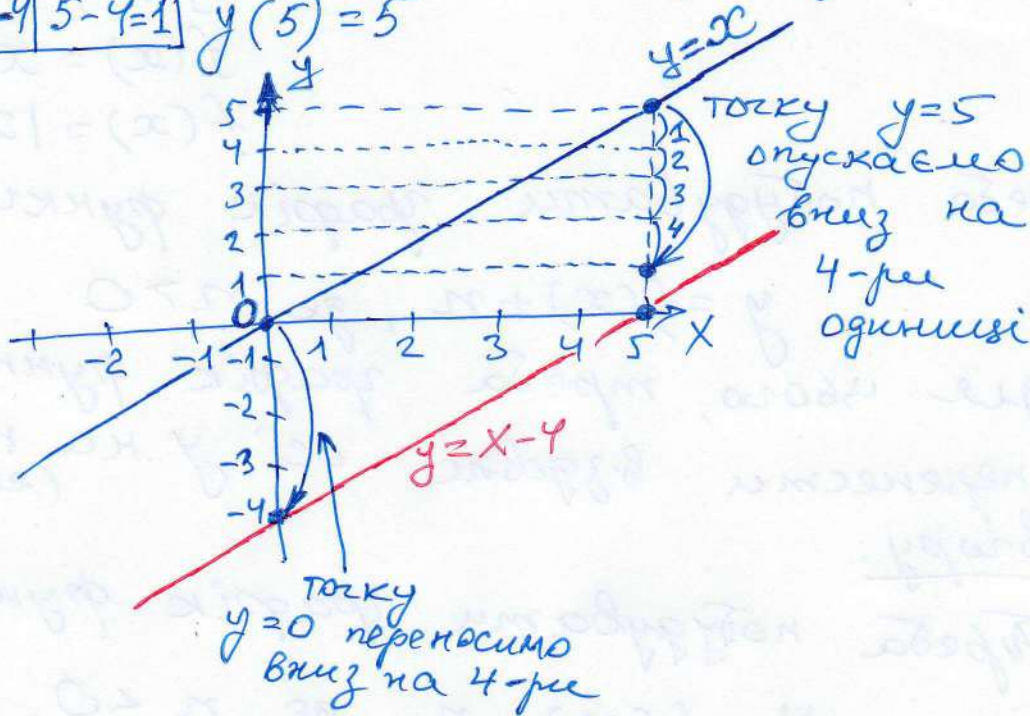 -4 5-4=1 y(5)=5
y
y=x
5
4
3
2
1
0
-1
-2
-3
-4
-2 -1 1 2 3 4 5 X
1
2
3
4
точку y=5
опускаємо
вниз на
4-ри
одиниці
y=x-4
точку
y=0 переносимо
вниз на 4-ри